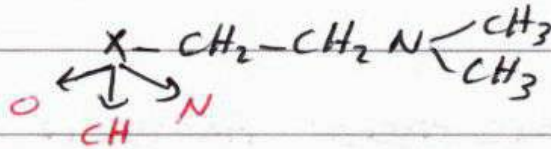 X - CH₂ - CH₂ N CH₃
CH₃
O CH N